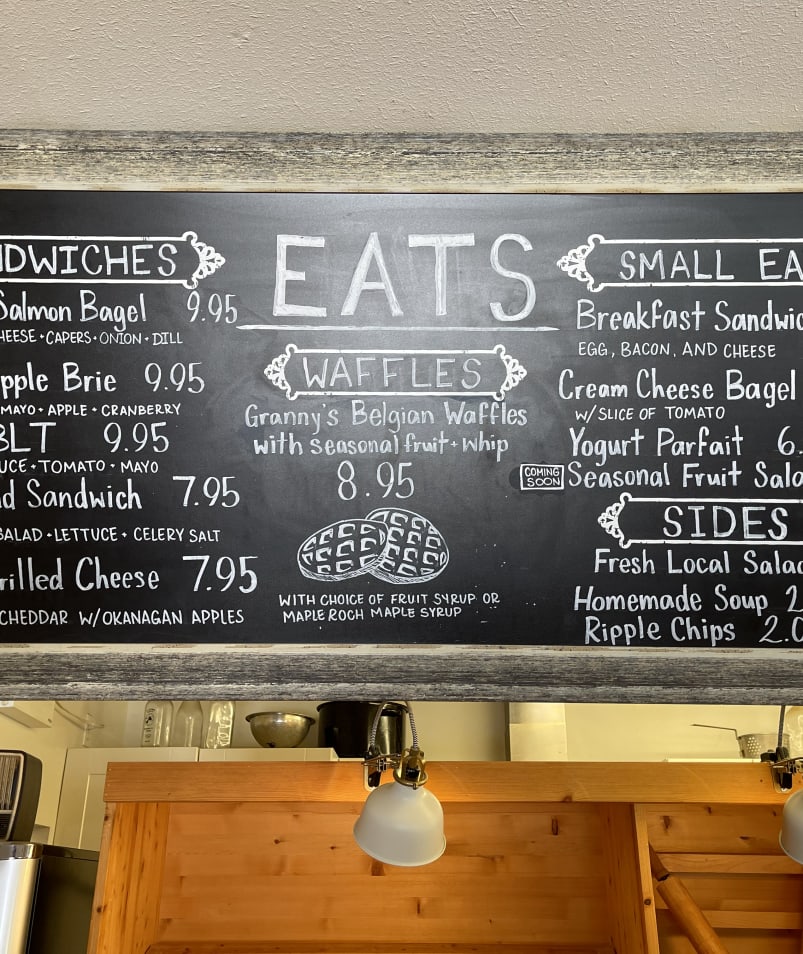 EATS
NDWICHES
Salmon Bagel 9.95
HEESE • CAPERS • ONION • DILL
pple Brie 9.95
MAYO • APPLE • CRANBERRY
BLT 9.95
UCE • TOMATO • MAYO
d Sandwich 7.95
SALAD • LETTUCE • CELERY SALT
rilled Cheese 7.95
CHEDDAR W/OKANAGAN APPLES
WAFFLES
Granny's Belgian Waffles
with seasonal fruit + whip
8.95
WITH CHOICE OF FRUIT SYRUP OR
MAPLE ROCH MAPLE SYRUP
SMALL EA
Breakfast Sandwic
EGG, BACON, AND CHEESE
Cream Cheese Bagel
W/ SLICE OF TOMATO
Yogurt Parfait 6.
COMING SOON Seasonal Fruit Sala
SIDES
Fresh Local Salad
Homemade Soup 2
Ripple Chips 2.0